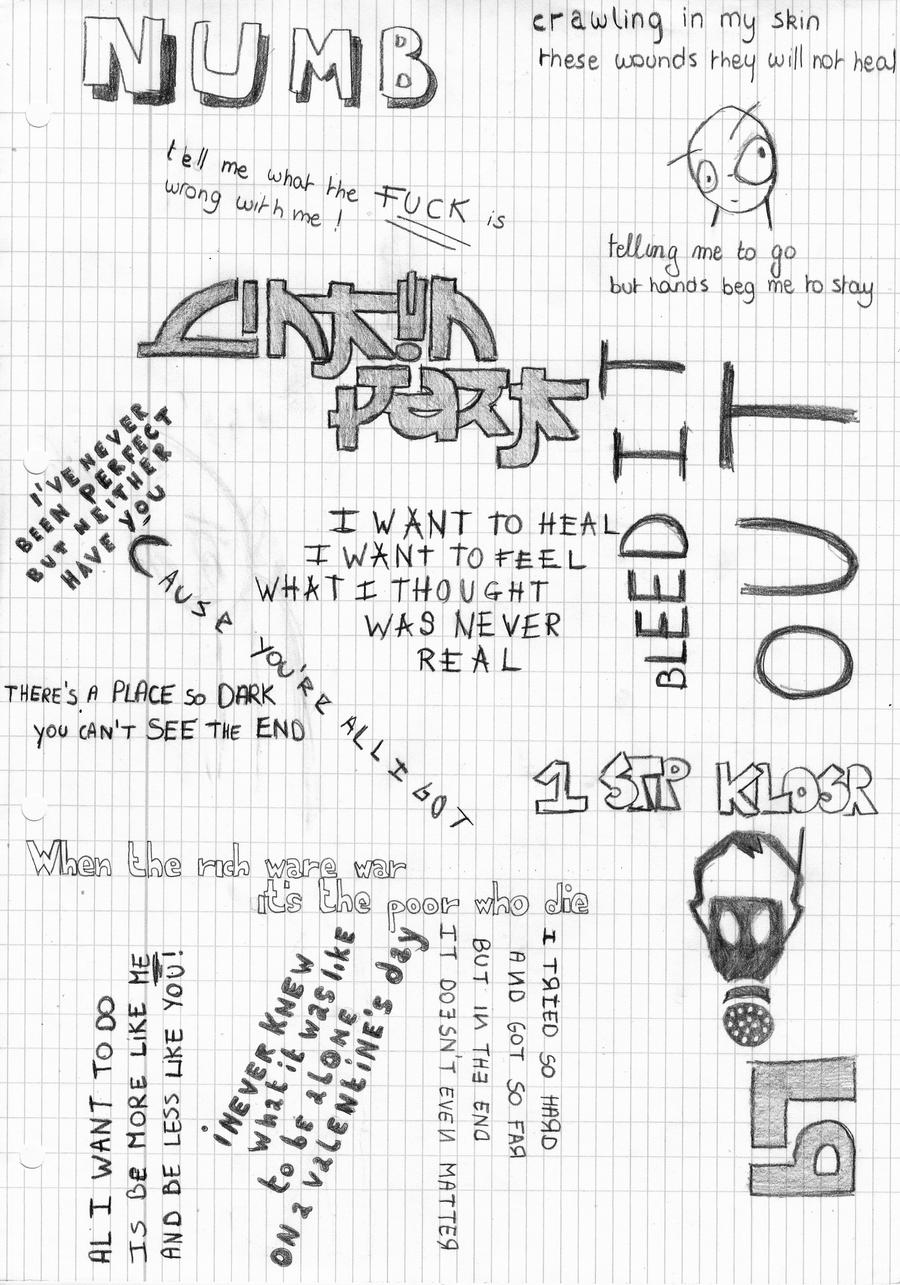 NUMB
crawling in my skin
these wounds they will not heal
tell me what the FUCK is
wrong with me !
telling me to go
but hands beg me to stay
LINKIN
PARK
BLEED IT
OUT
I'VE NEVER
BEEN PERFECT
BUT NEITHER
HAVE YOU
I WANT TO HEAL
I WANT TO FEEL
WHAT I THOUGHT
WAS NEVER
REAL
CAUSE YOU'RE ALL I GOT
THERE'S A PLACE SO DARK
YOU CAN'T SEE THE END
1 STP KLOSR
When the rich ware war
it's the poor who die
AL I WANT TO DO
IS BE MORE LIKE ME
AND BE LESS LIKE YOU!
i NEVER KNEW
What it was like
to be alONE
ON a valENtiNE's day
I TRIED SO HARD
AND GOT SO FAR
BUT IN THE END
IT DOESN'T EVEN MATTER